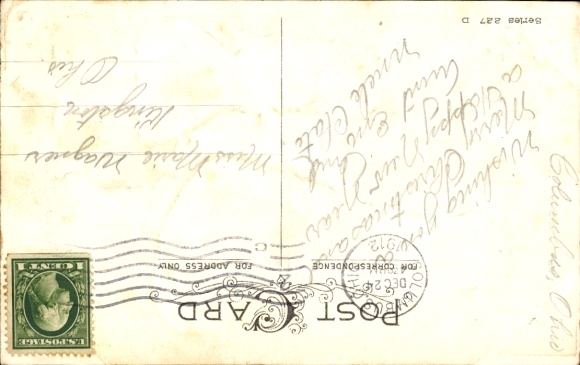 POST CARD
FOR CORRESPONDENCE
FOR ADDRESS ONLY
COLUMBUS
DEC 24
1912
OHIO
U.S. POSTAGE
1 CENT 1
Columbus, Ohio
Wishing you
a Merry Christmas and
a Happy New Year
Aunt Eve and
Uncle Clate
Miss Marie Wagner
Kingston
Ohio
Series 227 D